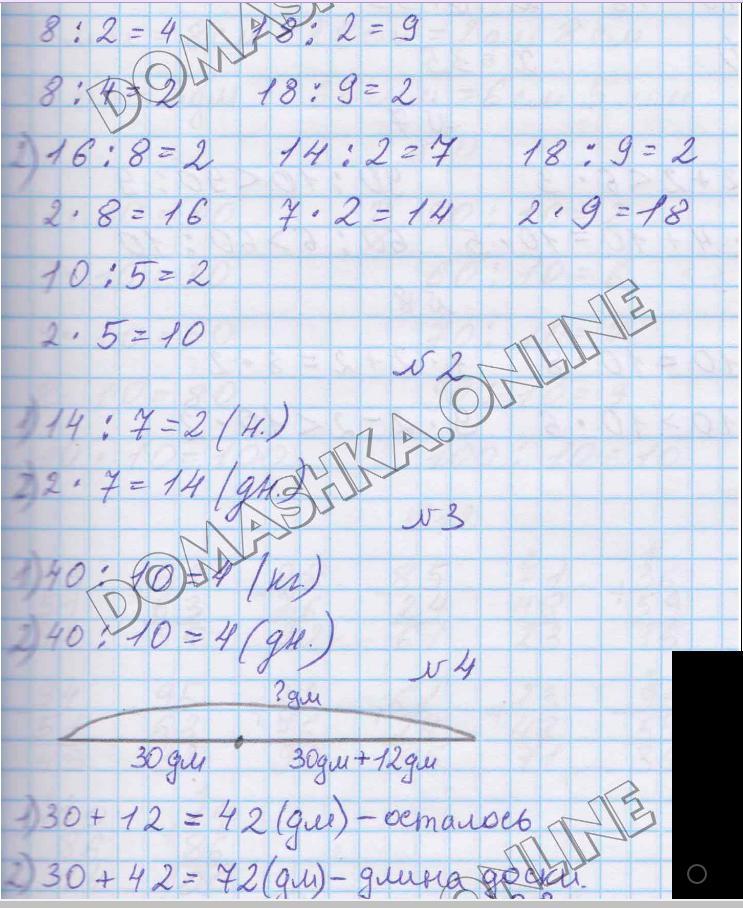 8 : 2 = 4 18 : 2 = 9
8 : 4 = 2 18 : 9 = 2
2) 16 : 8 = 2 14 : 2 = 7 18 : 9 = 2
2 · 8 = 16 7 · 2 = 14 2 · 9 = 18
10 : 5 = 2
2 · 5 = 10
№2
1) 14 : 7 = 2 (н.)
2) 2 · 7 = 14 (дн.)
№3
1) 40 : 10 = 4 (кг)
2) 40 : 10 = 4 (дн.)
№4
? дм
30 дм 30 дм + 12 дм
1) 30 + 12 = 42 (дм) – осталось
2) 30 + 42 = 72 (дм) – длина доски.
DOMASHKA.ONLINE